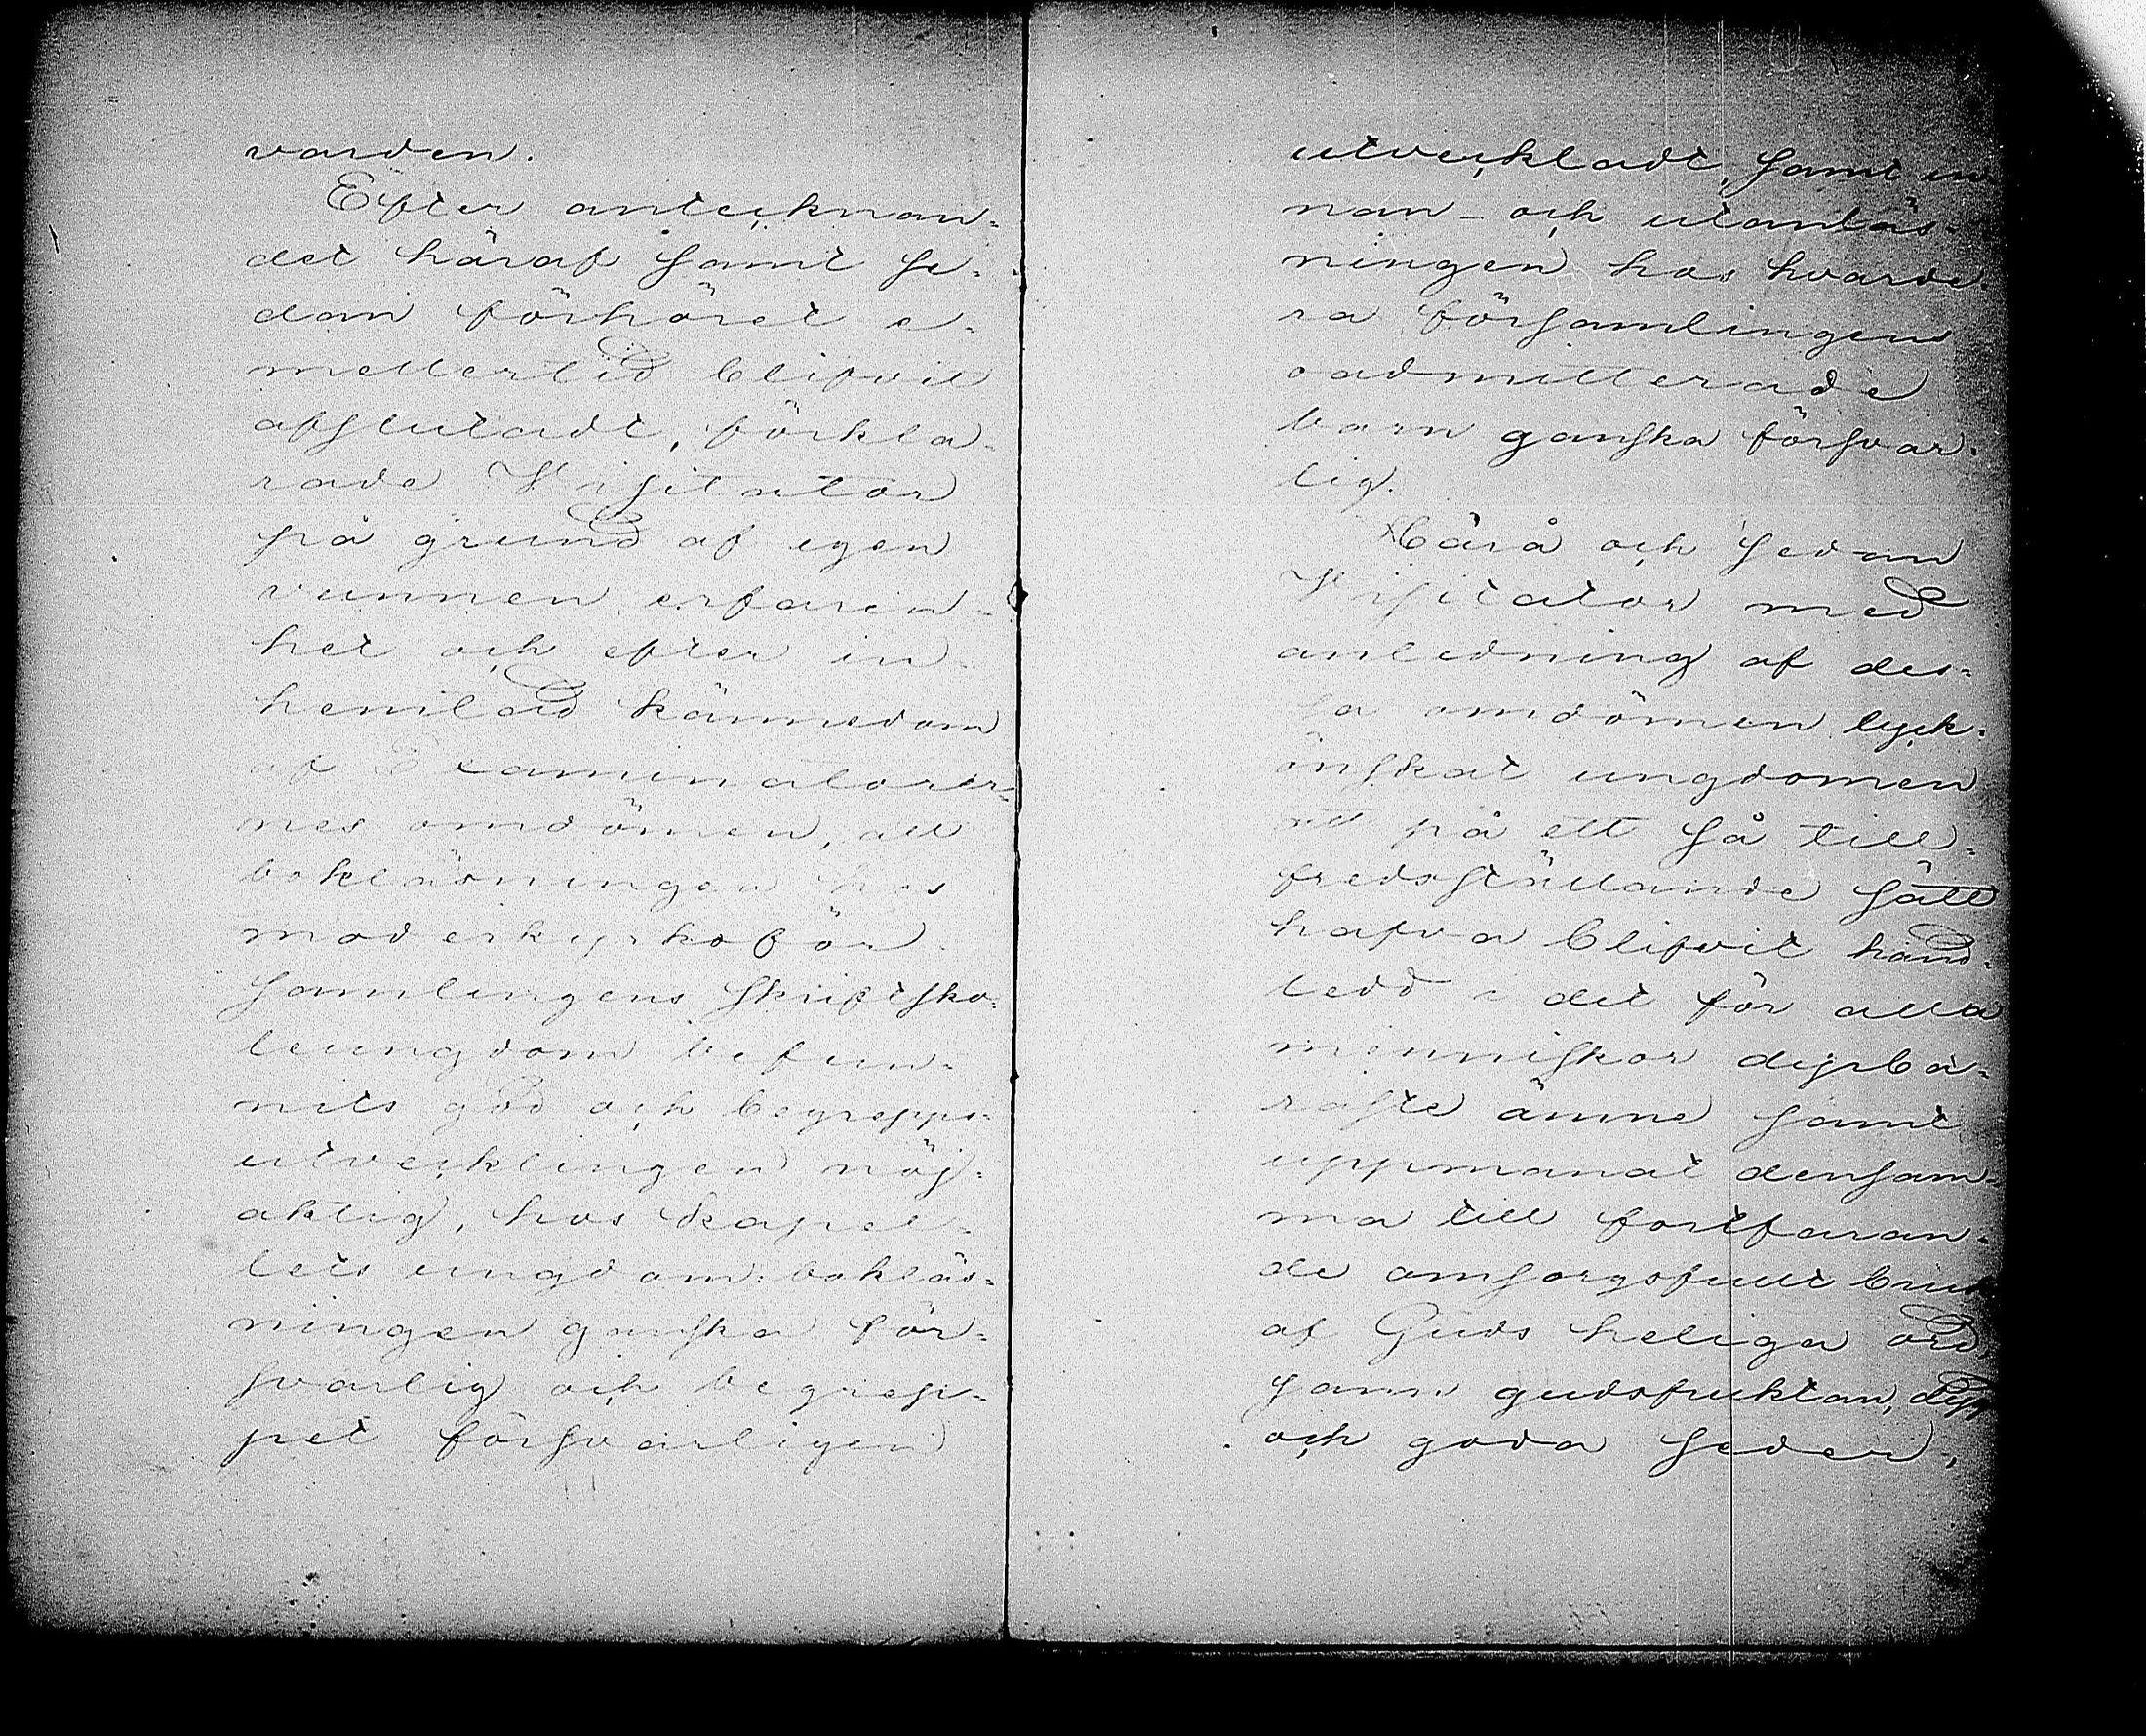 varden.
Efter anteçknan-
det häraf samt se-
dan förhöret e-
mellertid blifvit
afslutadt, förkla-
rade Visitator
på grund af egen
vunnen erfaren-
het och efter in-
hemtad kännedom
af Examinatorer-
nes omdömen, att
bokläsningen hos
moderkyrkoför-
samlingens skriftsko-
leungdom befun-
nits god och begrepps-
utvecklingen nöj-
aktig, hos kapel-
lets ungdom: bokläs-
ningen ganska för-
svarlig och begrep-
pet försvarligen
utveckladt, samt in-
nan- och utanläs-
ningen hos hvarde-
ra församlingens
oadmitterade
barn ganska försvar-
lig.
Härå och sedan
Visitator med
anledning af des-
sa omdömen lyck-
önskat ungdomen
att på ett så till-
fredsställande sätt
hafva blifvit hand-
ledd i det för alla
menniskor dyrba-
raste ämne samt
uppmanat densam-
ma till fortfaran-
de omsorgsfullt bruk
af Guds heliga ord,
sann gudsfruktan,
och goda seder,